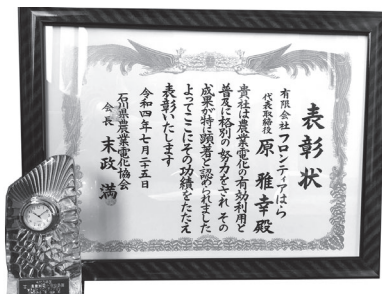 表彰状
有限会社フロンティアはら
代表取締役 原 雅幸殿
貴社は農業電化の有効利用と
普及に格別の努力をされ その
成果が特に顕著と認められました
よってここにその功績をたたえ
表彰いたします
令和四年七月二十五日
石川県農業電化協会
会長 末政 満